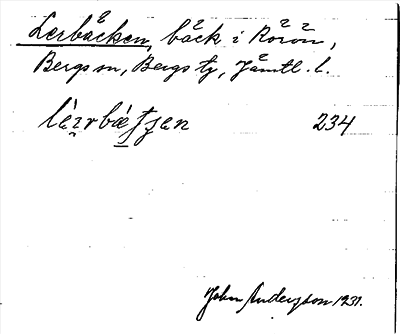 Lerbäcken, bäck i Rörön,
Bergs sn, Bergs tg, Jämtl. l.
234
John Anderzson 1931.